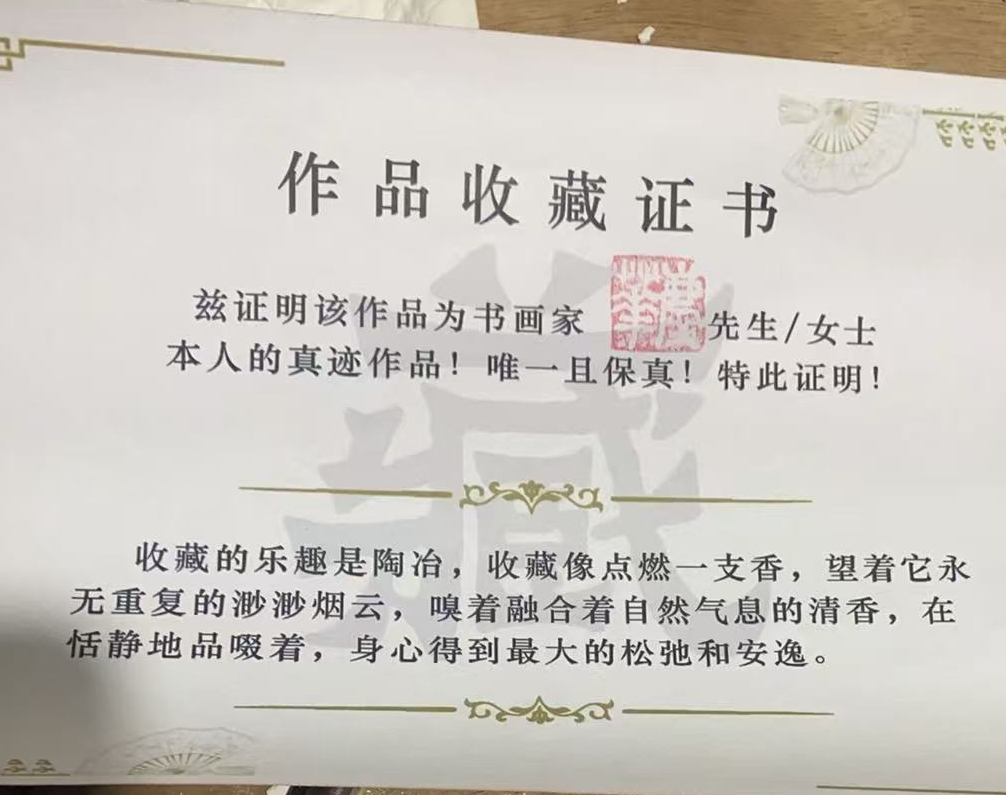 作品收藏证书
兹证明该作品为书画家 先生/女士
本人的真迹作品！唯一且保真！特此证明！
藏
收藏的乐趣是陶冶，收藏像点燃一支香，望着它永
无重复的渺渺烟云，嗅着融合着自然气息的清香，在
恬静地品啜着，身心得到最大的松弛和安逸。